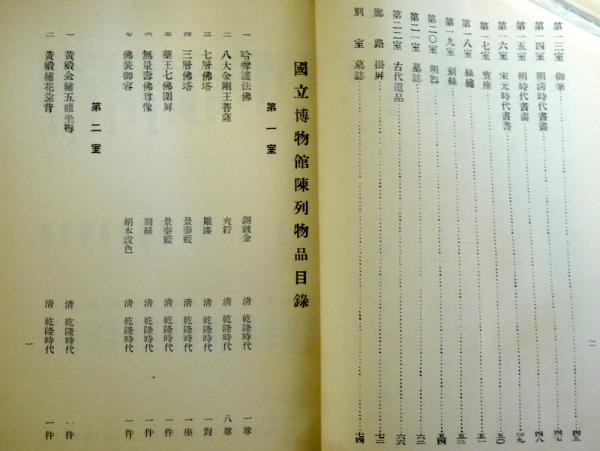 第一三室 御筆 四五
第一四室 明清時代書畫 四七
第一五室 明時代書畫 四八
第一六室 宋元時代書畫 四九
第一七室 寶座 五一
第一八室 絲繡 五二
第一九室 刻絲 五三
第二〇室 明器 五四
第二一室 墓誌 六二
第二二室 古代道品 六六
廊路 掛屏 七二
別室 墓誌 七四
二
國立博物館陳列物品目錄
第一室
一 哈唵護法佛 銅鍍金 清 乾隆時代 一尊
二 八大金剛王菩薩 夾紵 清 乾隆時代 八尊
三 七層佛塔 雕漆 清 乾隆時代 一對
四 三層佛塔 景泰藍 清 乾隆時代 一座
五 藥王七佛圍屏 景泰藍 清 乾隆時代 一件
六 無量壽佛尊像 刻絲 清 乾隆時代 一件
七 佛裝御容 絹本設色 清 乾隆時代 一件
第二室
一 黃緞金繡五龍坐褥 清 乾隆時代 一件
二 黃緞繡花靠背 清 乾隆時代 一件
一